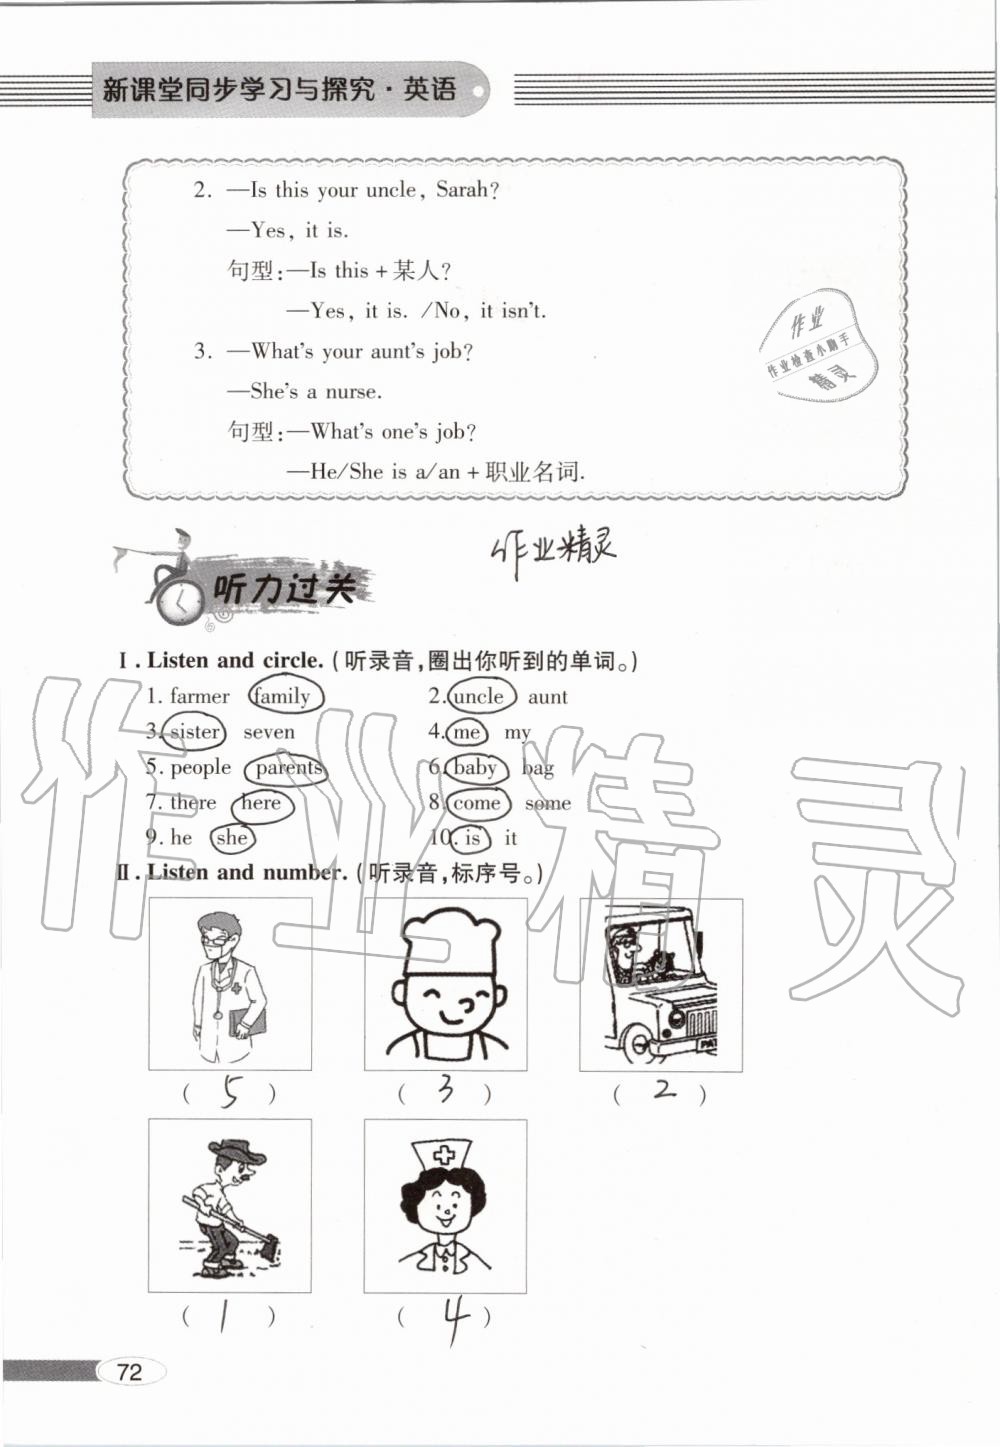 新课堂同步学习与探究·英语
2. —Is this your uncle, Sarah?
—Yes, it is.
句型:—Is this + 某人?
—Yes, it is. /No, it isn't.
3. —What's your aunt's job?
—She's a nurse.
句型:—What's one's job?
—He/She is a/an + 职业名词.
作业
作业检查小助手
精灵
作业精灵
听力过关
Ⅰ. Listen and circle. (听录音,圈出你听到的单词。)
1. farmer family 2. uncle aunt
3. sister seven 4. me my
5. people parents 6. baby bag
7. there here 8. come some
9. he she 10. is it
Ⅱ. Listen and number. (听录音,标序号。)
PAT
( 5 ) ( 3 ) ( 2 )
( 1 ) ( 4 )
72
作业精灵